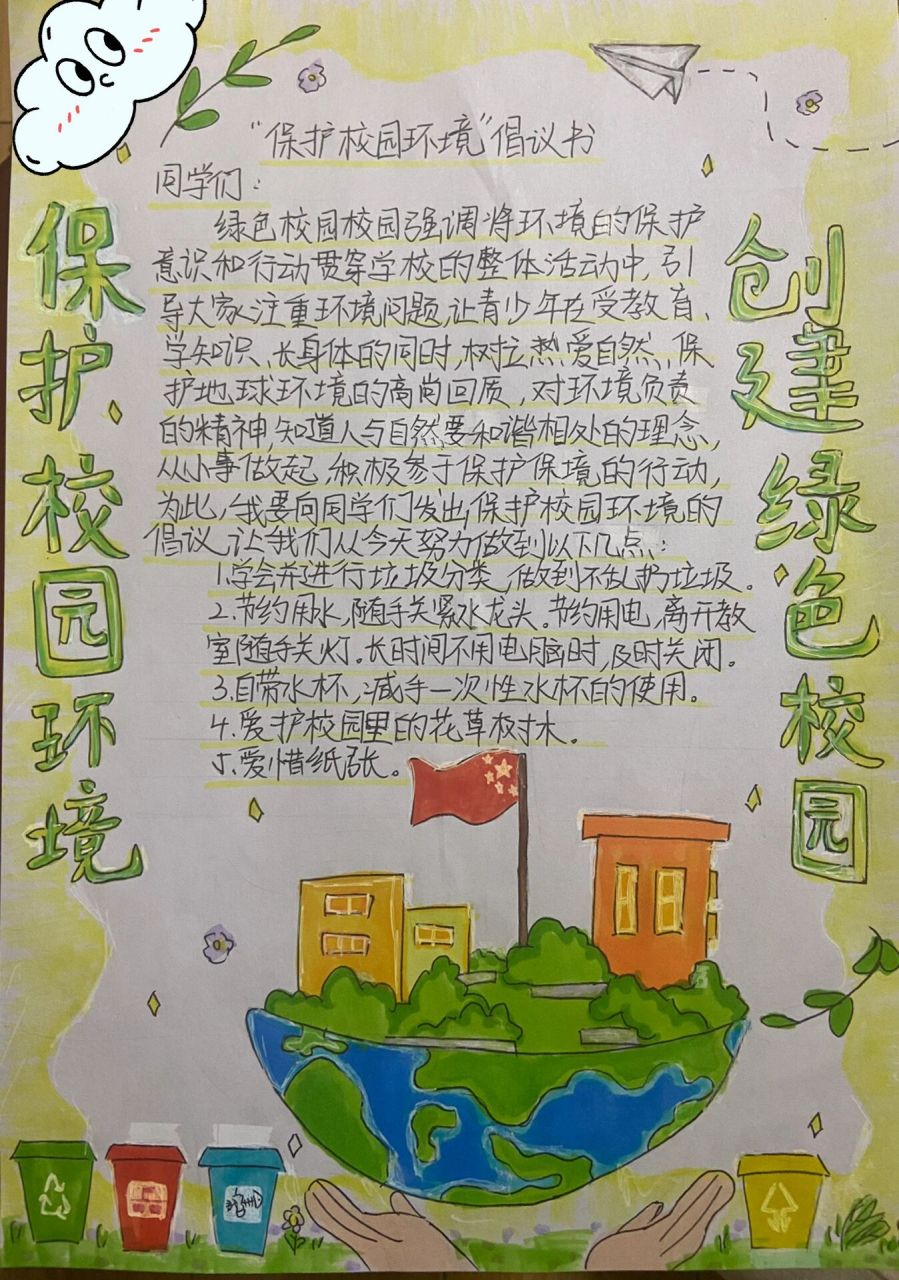 "保护校园环境"倡议书
同学们:
绿色校园校园强调将环境的保护
意识和行动贯穿学校的整体活动中,引
导大家注重环境问题,让青少年在受教育、
学知识、长身体的同时,树立热爱自然、保
护地球环境的高尚回质,对环境负责
的精神,知道人与自然要和谐相处的理念,
从小事做起,积极参于保护保境的行动,
为此,我要向同学们发出保护校园环境的
倡议,让我们从今天努力做到以下几点:
1.学会并进行垃圾分类,做到不乱扔垃圾。
2.节约用水,随手关紧水龙头。节约用电,离开教
室随手关灯。长时间不用电脑时,及时关闭。
3.自带水杯,减手一次性水杯的使用。
4.爱护校园里的花草树木。
5.爱惜纸张。
保护校园环境
创建绿色校园